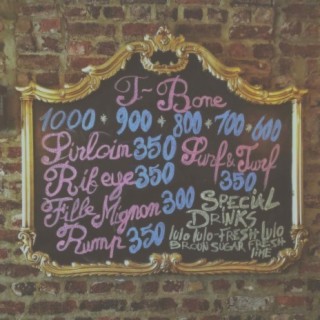 T-Bone
1000 + 900 + 800 + 700 + 600
Sirloin 350
Rib eye 350
Fille Mignon 300
Rump 350
Surf & Turf
350
Special
Drinks
lulo lulo-Fresh Lulo
Brown Sugar Fresh
lime